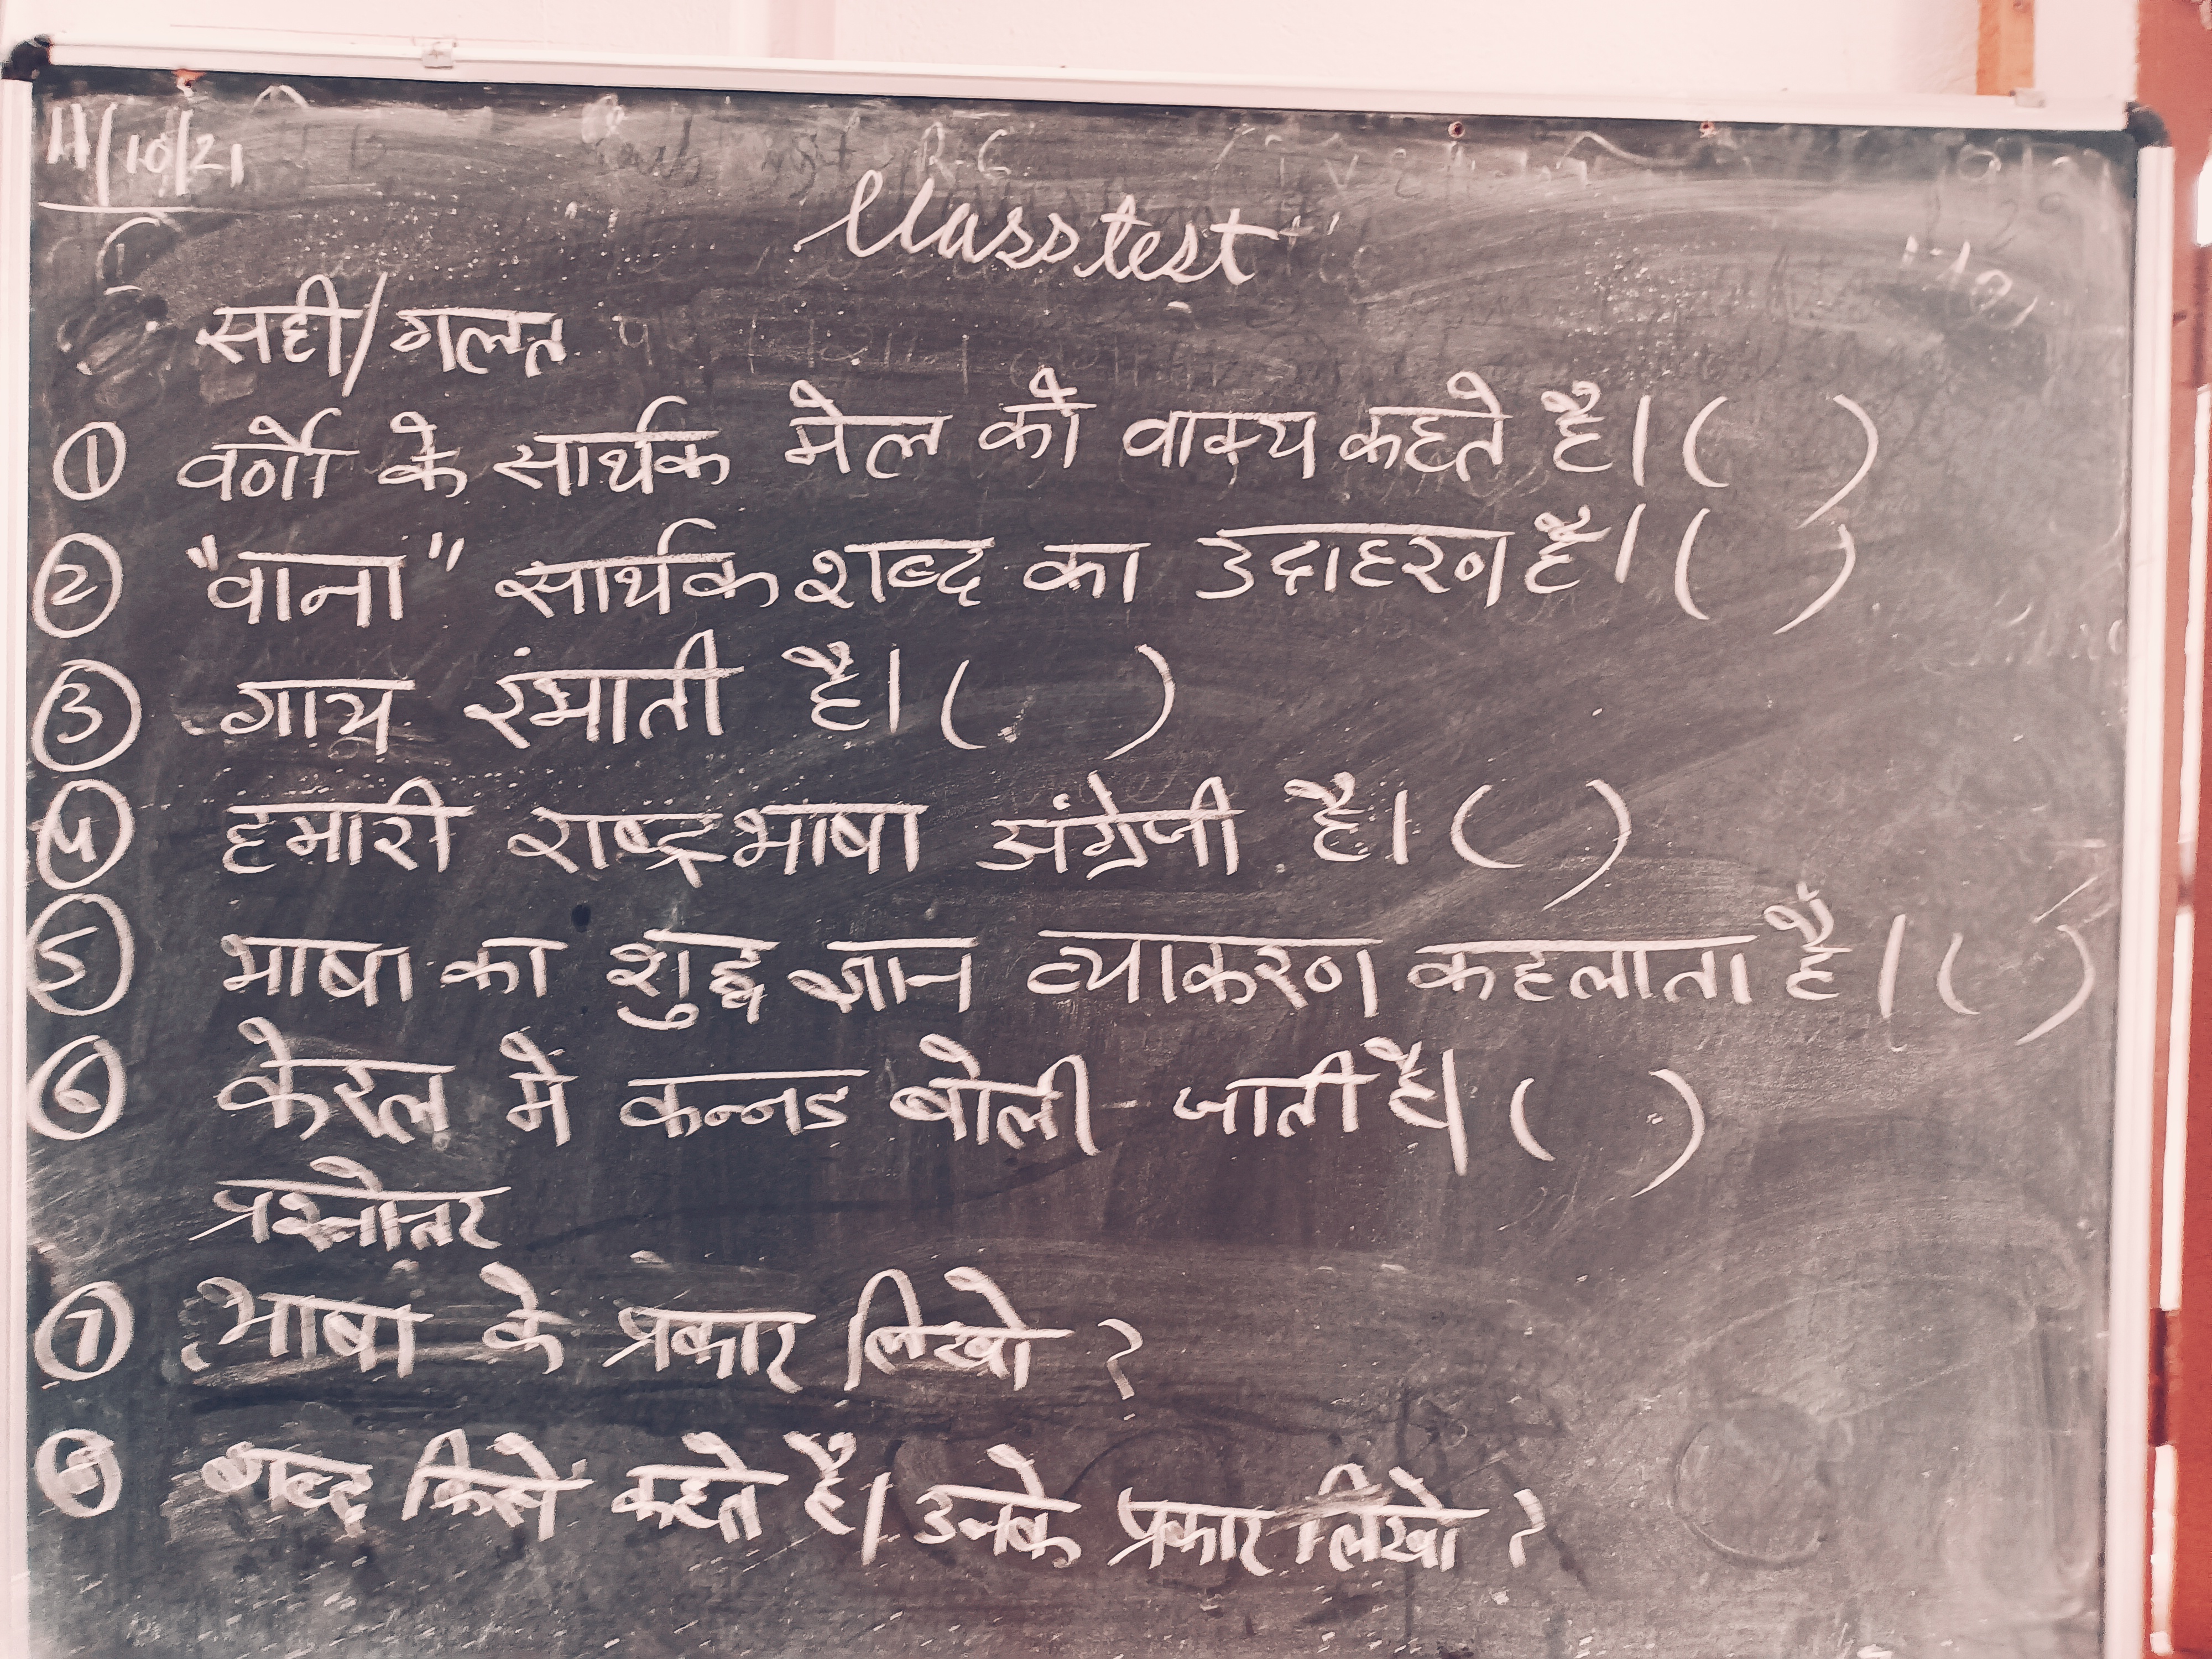 11/10/21
Class test
सही/गलत
① वर्णों के सार्थक मेल को वाक्य कहते है। ( )
② "वाना" सार्थक शब्द का उदाहरण है। ( )
③ गाय रंभाती है। ( )
④ हमारी राष्ट्रभाषा अंग्रेजी है। ( )
⑤ भाषा का शुद्ध ज्ञान व्याकरण कहलाता है। ( )
⑥ केरल में कन्नड बोली जाती है। ( )
प्रश्नोत्तर
⑦ भाषा के प्रकार लिखो ?
⑧ शब्द किसे कहते है। उनके प्रकार लिखो ?